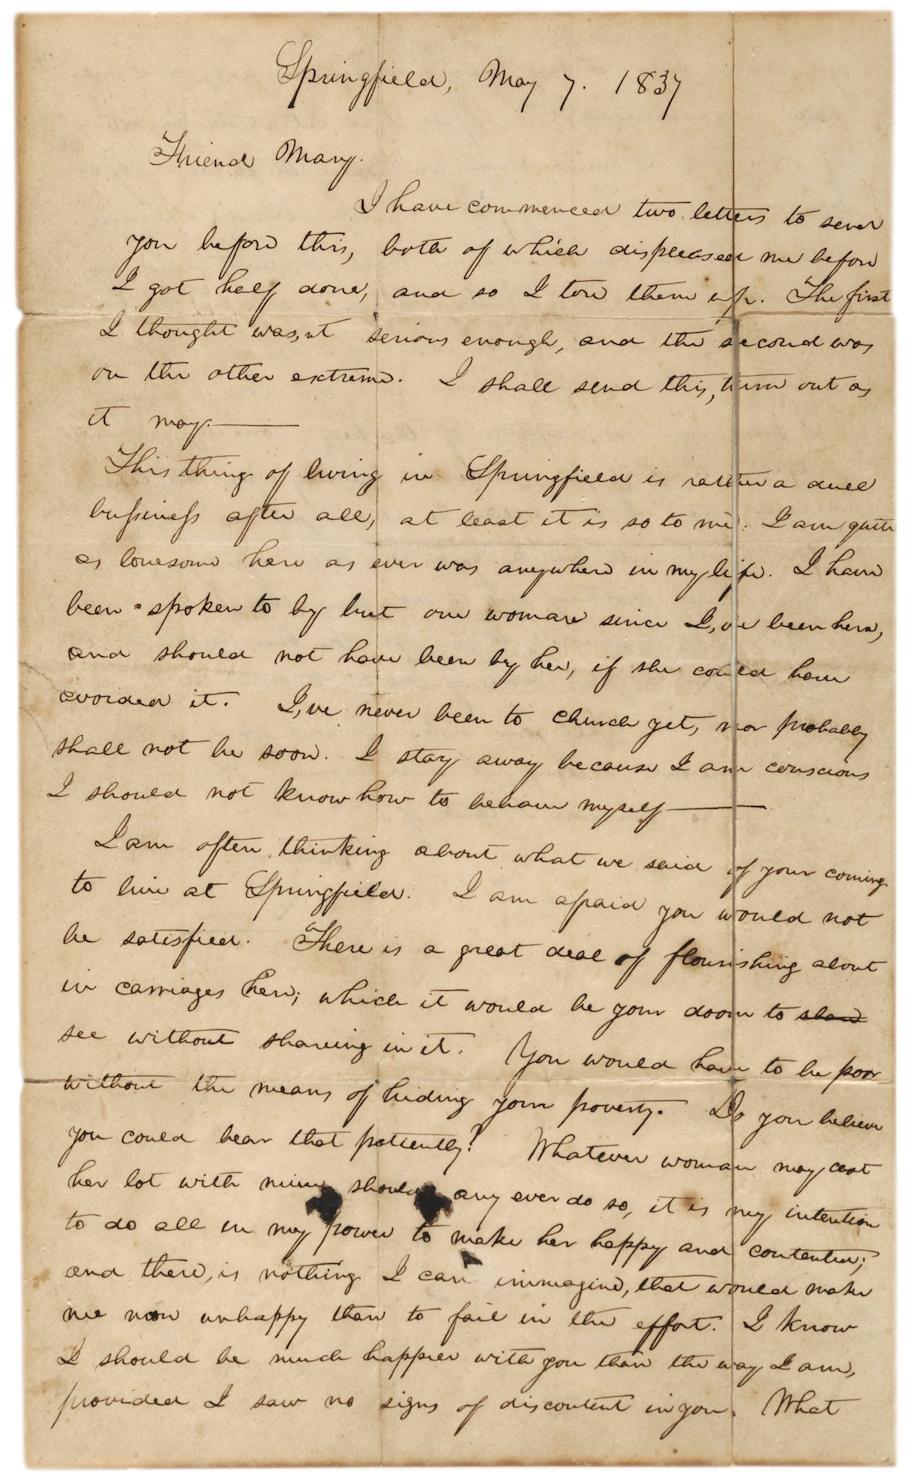 Springfield, May 7. 1837
Friend Mary.
I have commenced two letters to send
you before this, both of which displeased me before
I got half done, and so I tore them up. The first
I thought was,nt serious enough, and the second was
on the other extreme. I shall send this, turn out as
it may.
This thing of living in Springfield is rather a dull
business after all, at least it is so to me. I am quite
as lonesome here as ever was anywhere in my life. I have
been spoken to by but one woman since I,ve been here,
and should not have been by her, if she could have
avoided it. I,ve never been to church yet, nor probably
shall not be soon. I stay away because I am conscious
I should not know how to behave myself
I am often thinking about what we said of your coming
to live at Springfield. I am afraid you would not
be satisfied. There is a great deal of flourishing about
in carriages here; which it would be your doom to
see without sharing in it. You would have to be poor
without the means of hiding your poverty. Do you believe
you could bear that patiently? Whatever woman may cast
her lot with mine, should any ever do so, it is my intention
to do all in my power to make her happy and contented;
and there, is nothing I can immagine, that would make
me more unhappy than to fail in the effort. I know
I should be much happier with you than the way I am,
provided I saw no signs of discontent in you. What